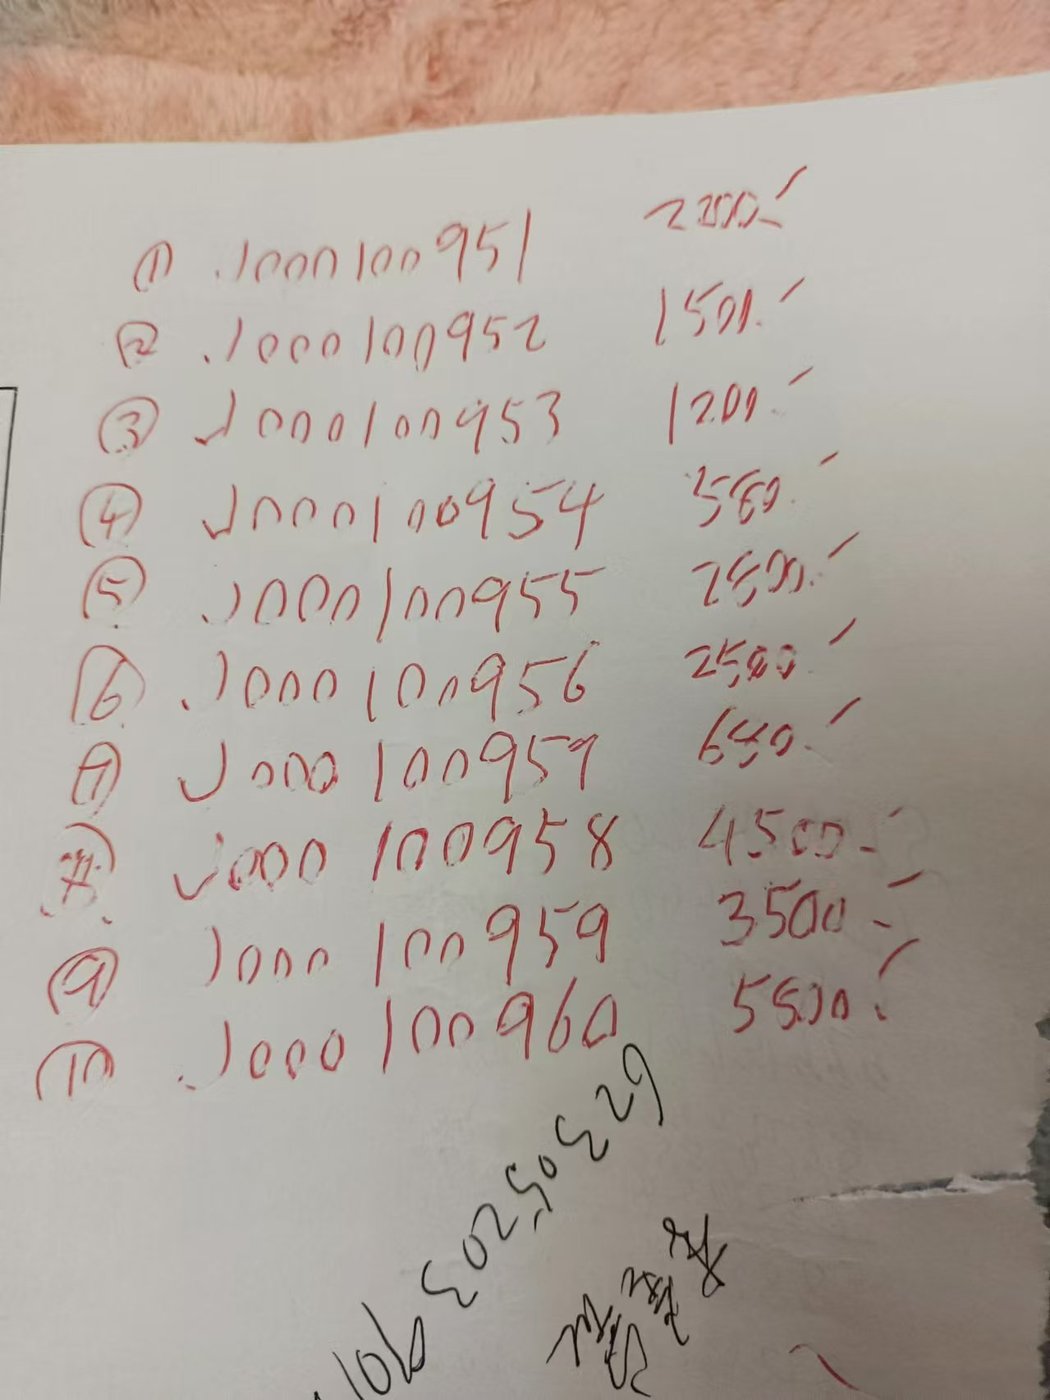 ① J000100951 2200.-
② J000100952 1500.-
③ J000100953 1200.-
④ J000100954 550.-
⑤ J000100955 2500.-
⑥ J000100956 2500.-
⑦ J000100957 650.-
J000100958 4500.-
⑨ J000100959 3500.-
⑩ J000100960 5500.-